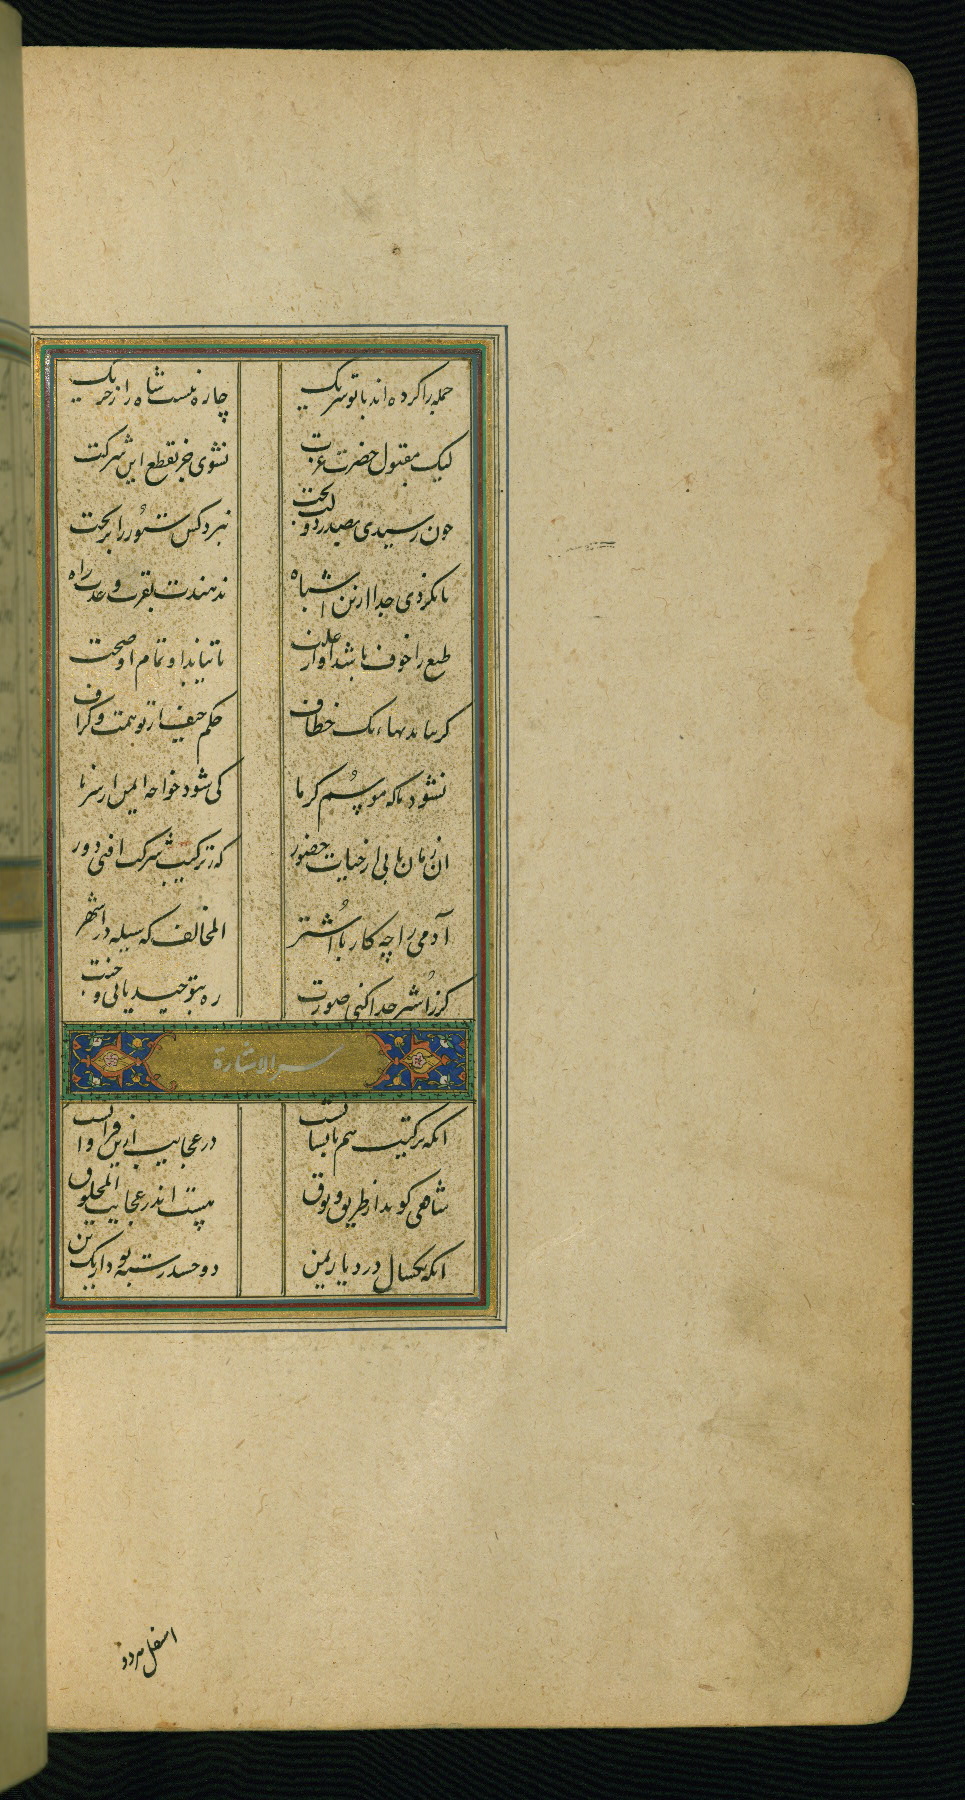 جمله را کرده‌اند با تو شریک چاره نیست شاه را ز حریک
لیک مقبول حضرت عزت نشوی جز بقطع این شرکت
چون رسیدی بصدر دولت بخت نبرد کس ستور را بر تخت
تا نکردی جدا ازین اشباه ندهندت بقرب وحدت راه
طبع را خوف باشد او از تا نیاید او تمام او صحت
کر نیاید بهاء یک خطاف حکم حیف از تو همت و کزاف
نشود تا که موسم کرما کی شود خواجه ایمن از سرما
ان زمان یابی از حیات حضور که ز ترکیب شرکت افتی دور
آدمی را چه کار با اشتر المخالف که سبله در
کر ز اشتر جدا کنی صورت ره بتوحید یابی و جنت
سر الاشارة
انکه ترکیب هم در عجایب ازین فراوا
شاهی کوید از طریق وثوق هست اندر عجایب المخلوق
انکه یکسال در دیار یمن دو جسد رسته بود از یک تن
اسفل